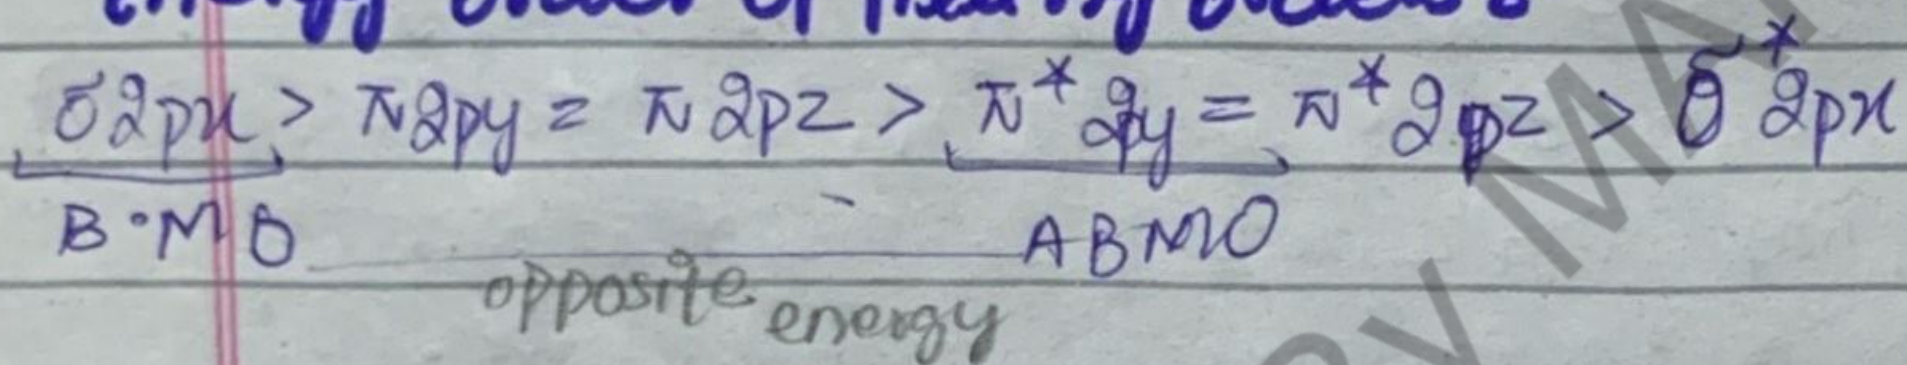 σ2px > π2py = π2pz > π*2py = π*2pz > σ*2px
B·MO ABMO
opposite energy